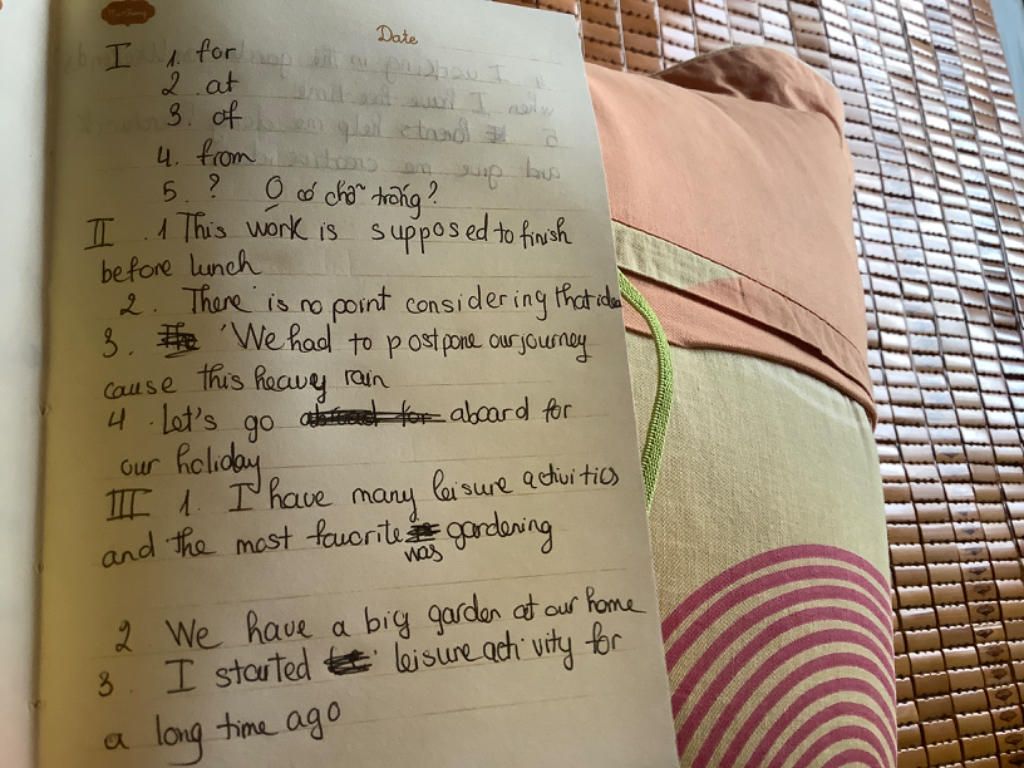 Date
I 1. for
2 at
3. of
4. from
5. ? O có chỗ trống?
II .1 This work is supposed to finish
before lunch
2. There is no point considering that idea
3. We had to postpone our journey
cause this heavy rain
4 . Let's go aboard for
our holiday
III 1. I have many leisure activities
and the most favorite gardening
was
2 We have a big garden at our home
3. I started leisure activity for
a long time ago